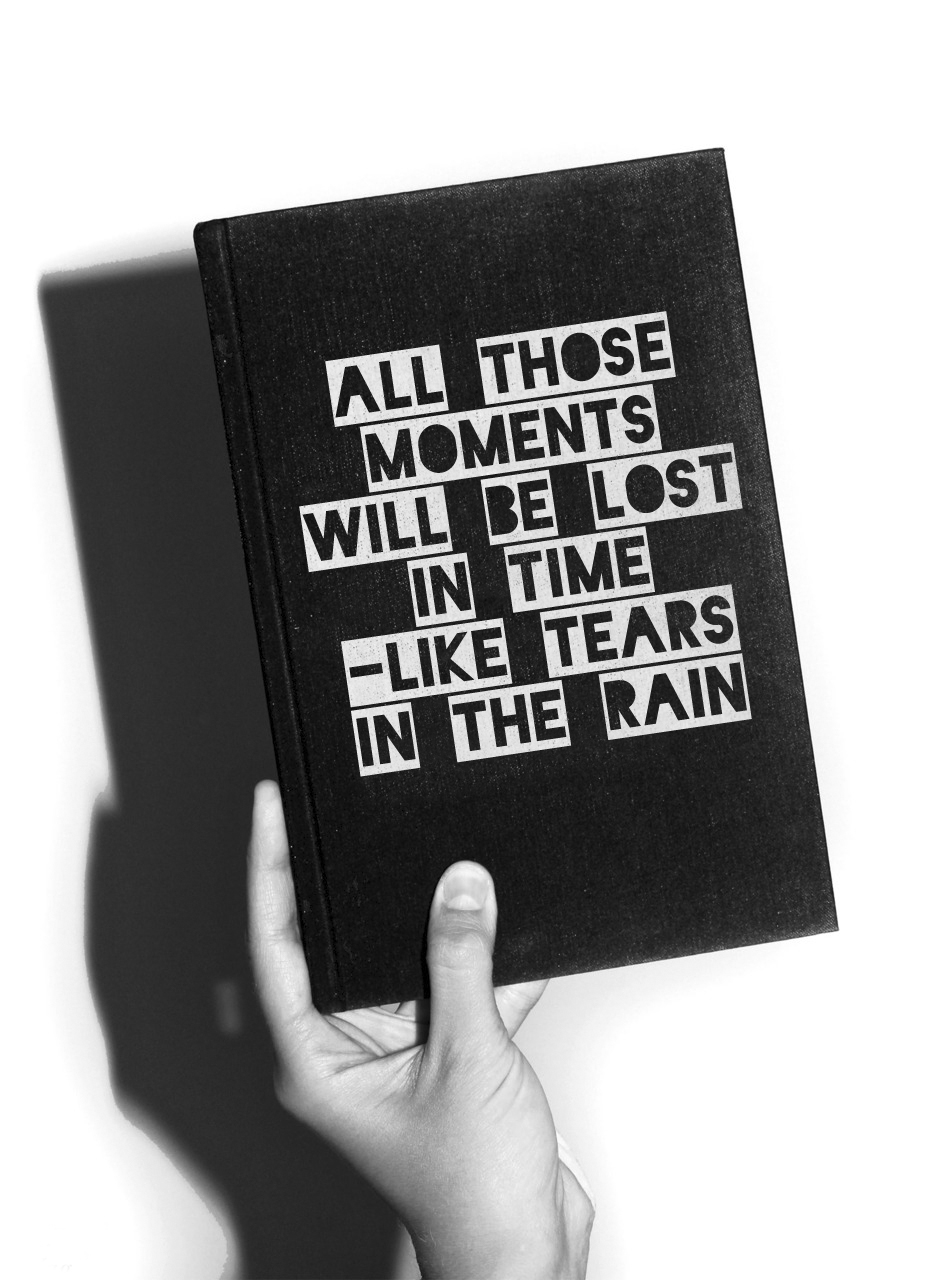 ALL THOSE
MOMENTS
WILL BE LOST
IN TIME
-LIKE TEARS
IN THE RAIN